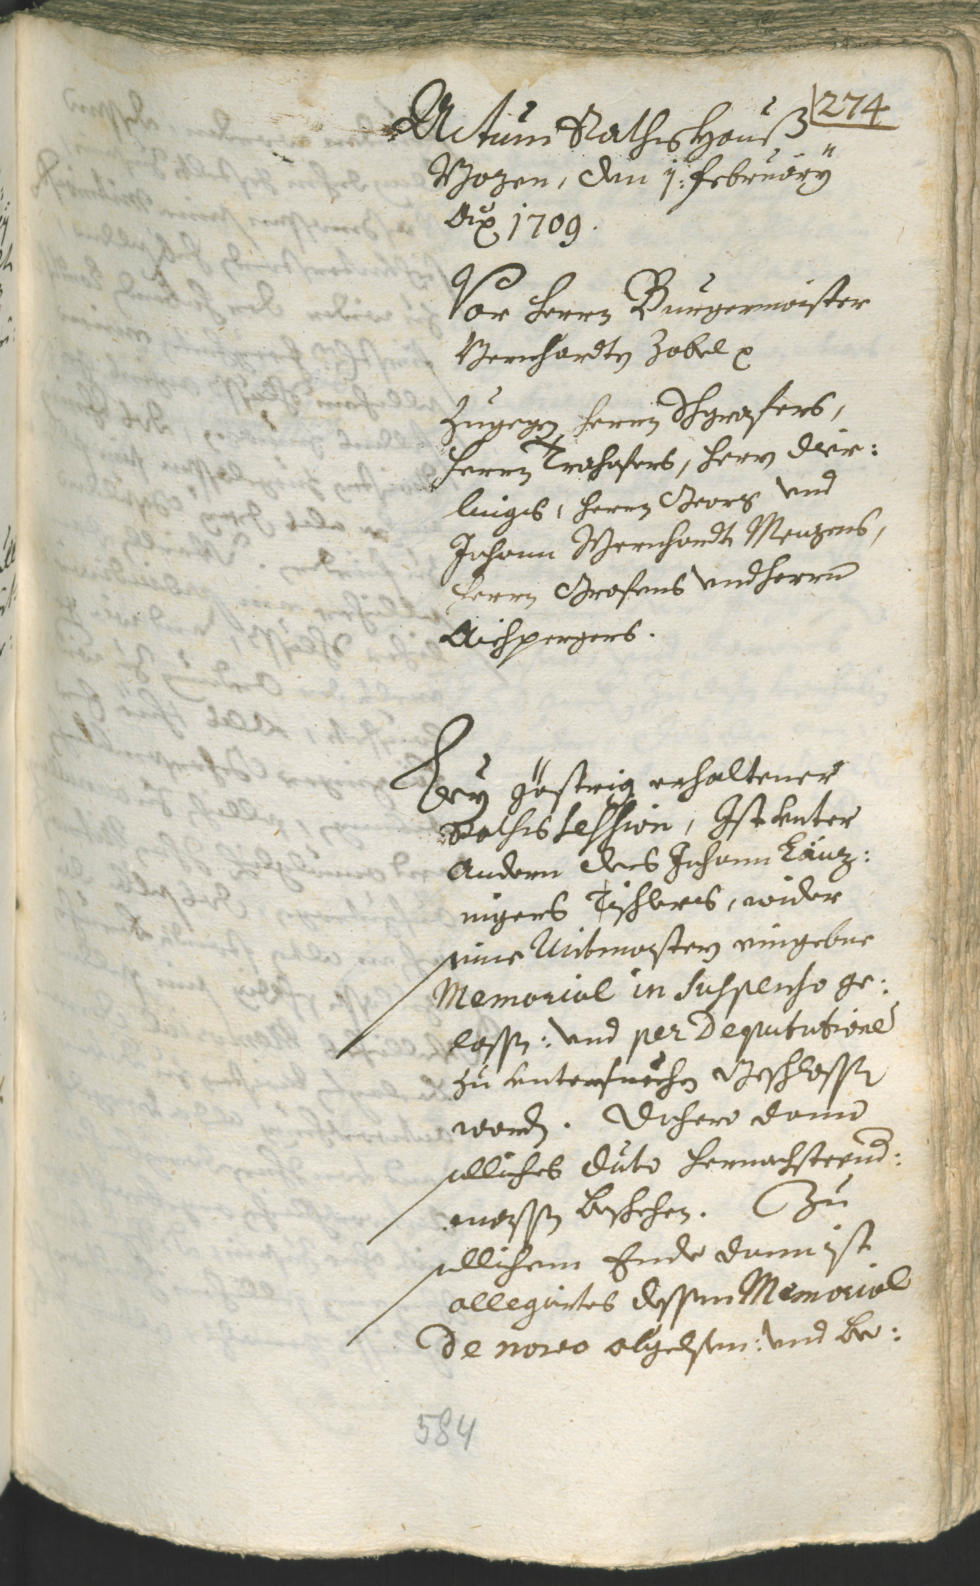 274
Actum Rathshauß
Bozen, den 1: february
Ao 1709.
Vor herrn Burgermaister
Bernhardtn Zobel p
Zugegen herrn Thgrafers,
herrn Trahofers, herrn Deir:
lings, herrn Georg und
Johann Bernhardt Menzens,
herrn Grafens und herrn
Aichpergers.
Bey gästrig erhaltener
RathsSession, Ist unter
Andern des Johann Länz:
nigers Tischlers, wider
seine Mitmaister eingebne
Memorial in Suspenso ge:
lassen: und per Deputatione
zu untersuechen Beschlossen
worden. Dahero dann
solliches dato hernachsteend:
massen beschehen. Zu
sollichem Ende dann ist
allegiertes dessen Memorial
De novo abgelesen: und be:
584